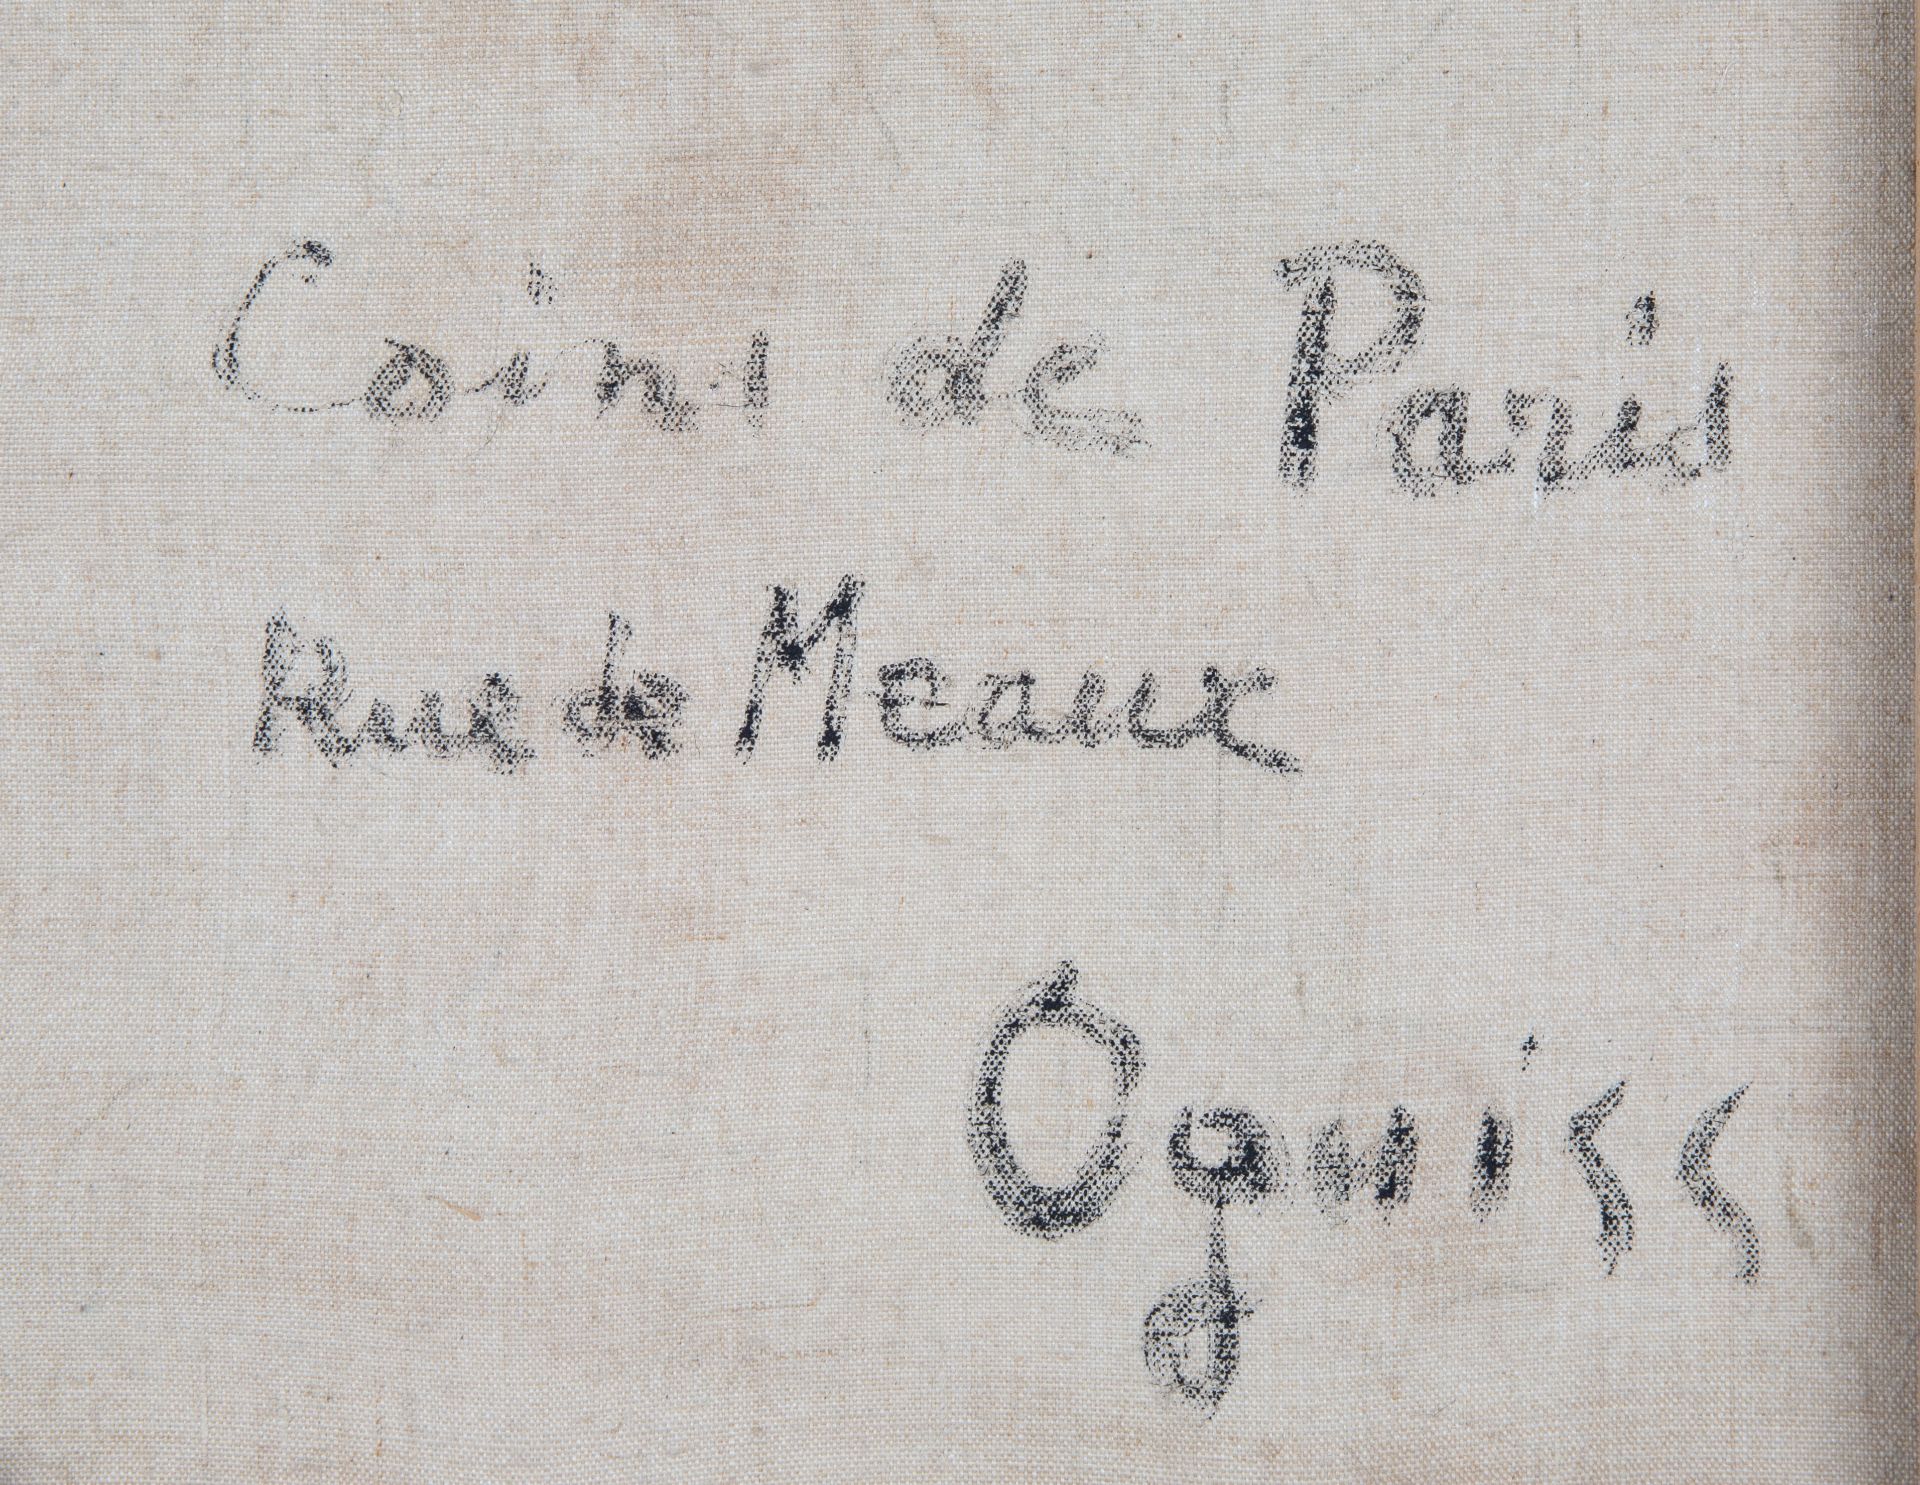 Coins de Paris
Rue de Meaux
Oguiss